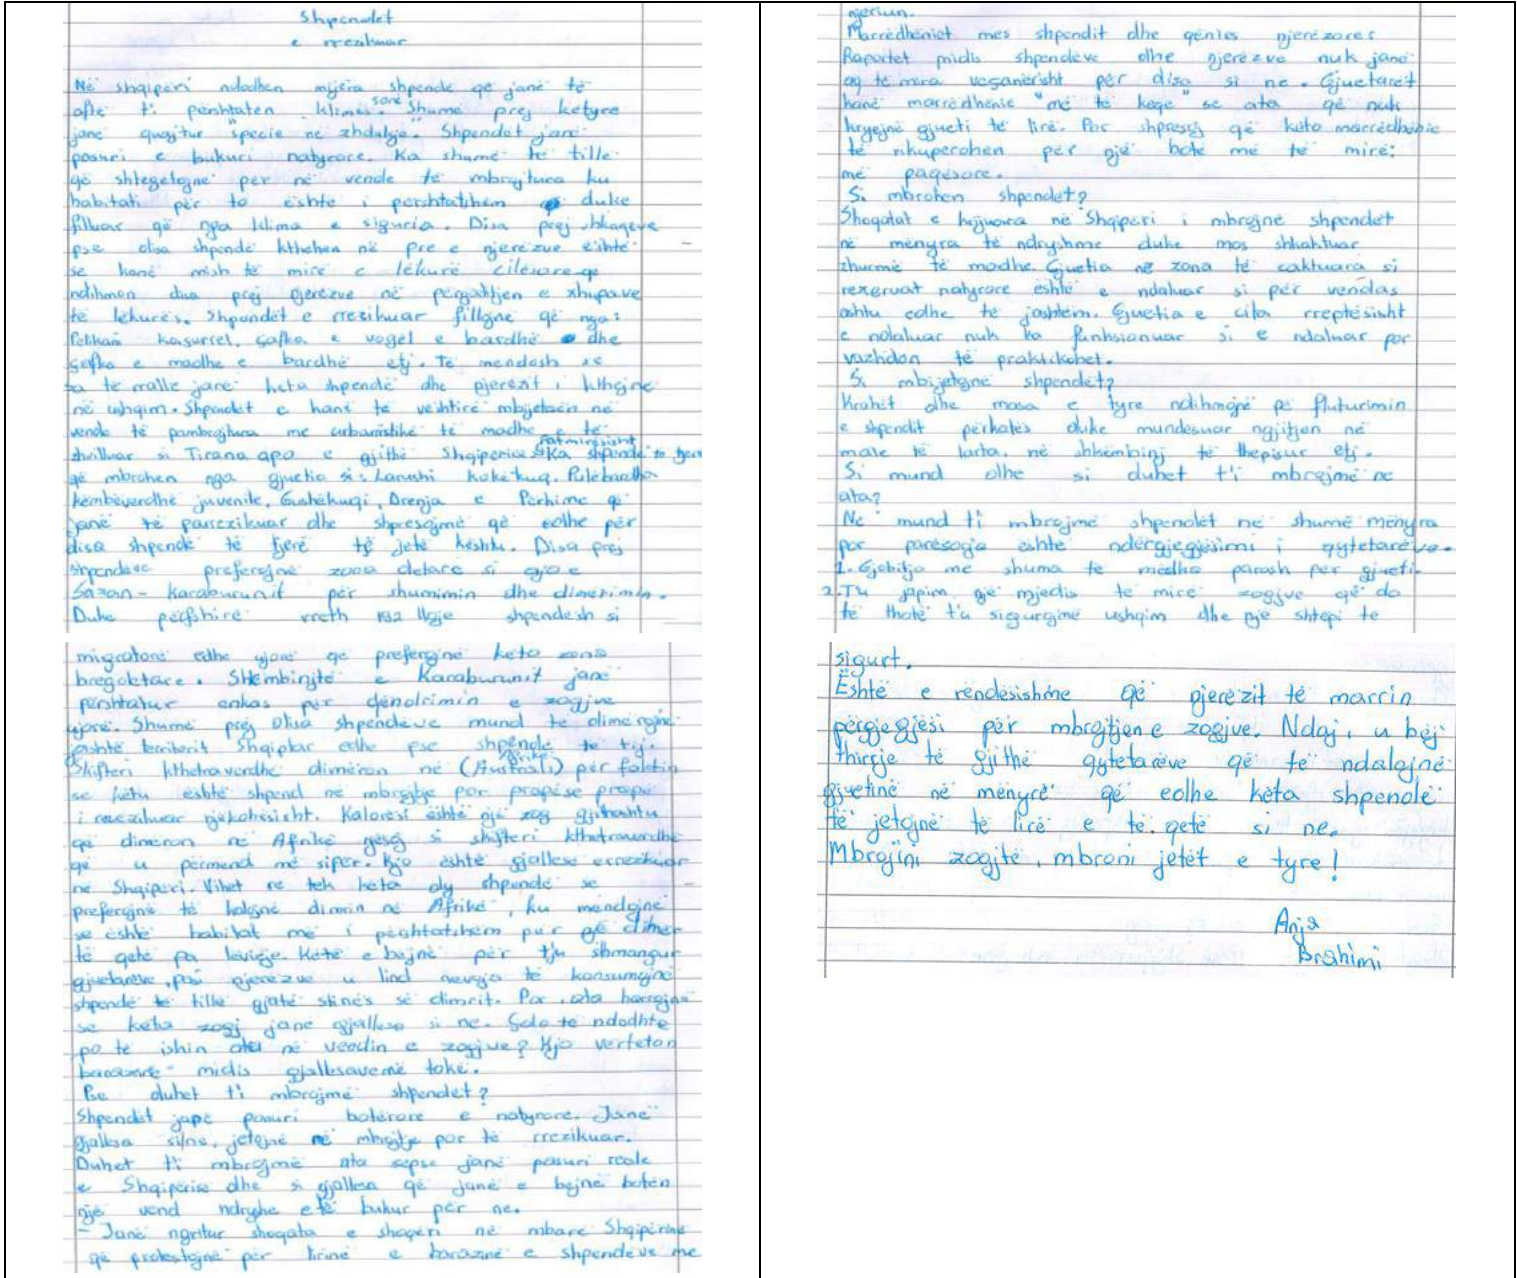 Shpendët
e rrezikuar
Në shqipëri ndodhen mijëra shpende që janë të
aftë t'i përshtaten klimës sonë. Shumë prej këtyre
janë quajtur "specie në zhdukje". Shpendët janë
pasuri e bukuri natyrore. Ka shumë të tillë
që shtegtojnë për në vende të mbrojtura ku
habitati për to është i përshtatshëm duke
filluar që nga klima e siguria. Disa prej shkaqeve
pse disa shpendë kthehen në pre e njerëzve është
se kanë mish të mirë e lëkurë cilësore që
ndihmon disa prej njerëzve në përgatitjen e xhupave
të lëkurës. Shpendët e rrezikuar fillojnë që nga:
Pelikani kaçurrel, çafka e vogël e bardhë dhe
çafka e madhe e bardhë etj. Të mendosh se
sa të rrallë janë këta shpendë dhe njerëzit i kthejnë
në ushqim. Shpendët e kanë të vështirë mbijetesën në
vende të pambrojtura me urbanistikë të madhe e të
zhvilluar si Tirana apo e gjithë Shqipëria. Fatmirësisht ka shpendë të tjerë
që mbrohen nga gjuetia si: Larushi kokëkuq, Pulëbardha
këmbëverdhë juvenile, Gushëkuqi, Drenja e Përhime që
janë të parrezikuar dhe shpresojmë që edhe për
disa shpendë të tjerë të jetë kështu. Disa prej
shpendëve preferojnë zona detare si ajo e
Sazan-Karaburunit për shumimin dhe dimërimin.
Duke përfshirë rreth 132 lloje shpendësh si
migratorë edhe ujorë që preferojnë këto zona
bregdetare. Shkëmbinjtë e Karaburunit janë
përshtatur enkas për qëndrimin e zogjve
ujorë. Shumë prej disa shpendëve mund të dimërojnë
jashtë territorit Shqiptar edhe pse shpendë të tij.
Skifteri kthetraverdhë dimëron në (Australi) Afrikë për faktin
se këtu është shpend në mbrojtje por propëse propë
i rrezikuar njëkohësisht. Kaloresi është një zog gjithashtu
që dimëron në Afrikë njësoj si skifteri kthetraverdhë
që u përmend më sipër. Kjo është gjallesë e rrezikuar
në Shqipëri. Vihet re tek këta dy shpendë se
preferojnë të kalojnë dimrin në Afrikë, ku mendojnë
se është habitat më i përshtatshëm për një dimër
të qetë pa lëvizje. Këtë e bëjnë për t'ju shmangur
gjuetarëve, pasi njerëzve u lind nevoja të konsumojnë
shpendë të tillë gjatë stinës së dimrit. Por ata harrojnë
se këta zogj janë gjallesa si ne. Ç'do të ndodhte
po të ishin ata në vendin e zogjve? Kjo vërteton
barazinë midis gjallesave në tokë.
Pse duhet t'i mbrojmë shpendët?
Shpendët japë pasuri botërore e natyrore. Janë
gjallesa si ne, jetojnë në mbrojtje por të rrezikuar.
Duhet t'i mbrojmë ata sepse janë pasuri reale
e Shqipërisë dhe si gjallesa që janë e bëjnë botën
një vend ndryshe e të bukur për ne.
- Janë ngritur shoqata e shoqëri në mbarë Shqipërinë
që protestojnë për lirinë e barazinë e shpendëve me
njeriun.
Marrëdhëniet mes shpendit dhe qënies njerëzore:
Raportet midis shpendëve dhe njerëzve nuk janë
aq të mira veçanërisht për disa si ne. Gjuetarët
kanë marrëdhënie "më të keqe" se ata që nuk
kryejnë gjueti të lirë. Por shpresoj që këto marrëdhënie
të rikuperohen për një botë më të mirë;
më paqësore.
Si mbrohen shpendët?
Shoqatat e krijuara në Shqipëri i mbrojnë shpendët
në mënyra të ndryshme duke mos shkaktuar
zhurmë të madhe. Gjuetia në zona të caktuara si
rezervat natyrore është e ndaluar si për vendas
ashtu edhe të jashtëm. Gjuetia e cila rreptësisht
e ndaluar nuk ka funksionuar si e ndaluar por
vazhdon të praktikohet.
Si mbijetojnë shpendët?
Krahët dhe masa e tyre ndihmojnë për fluturimin
e shpendit përkatës duke mundësuar ngjitjen në
male të larta, në shkëmbinj të thepisur etj.
Si mund dhe si duhet t'i mbrojmë ne
ata?
Ne mund t'i mbrojmë shpendët në shumë mënyra
por parësorja është ndërgjegjësimi i qytetarëve.
1. Gjobitja me shuma të mëdha parash për gjueti.
2. T'u japim një mjedis të mirë zogjve që do
të thotë t'u sigurojmë ushqim dhe një shtëpi të
sigurt.
Është e rëndësishme që njerëzit të marrin
përgjegjësi për mbrojtjen e zogjve. Ndaj, u bëj
thirrje të gjithë qytetarëve që të ndalojnë
gjuetinë në mënyrë që edhe këta shpendë
të jetojnë të lirë e të qetë si ne.
Mbrojini zogjtë, mbroni jetët e tyre!
Anja
Brahimi